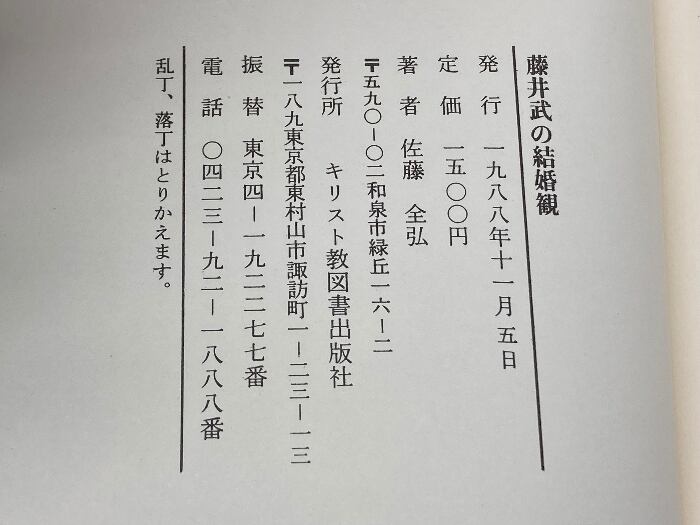 藤井武の結婚観
発行 一九八八年十一月五日
定価 一五〇〇円
著者 佐藤 全弘
〒五九〇－〇二和泉市緑丘一六－二
発行所 キリスト教図書出版社
〒一八九東京都東村山市諏訪町一－二三－一三
振替 東京四－一九二二七七番
電話 〇四二三－九二－一八八八番
乱丁、落丁はとりかえます。